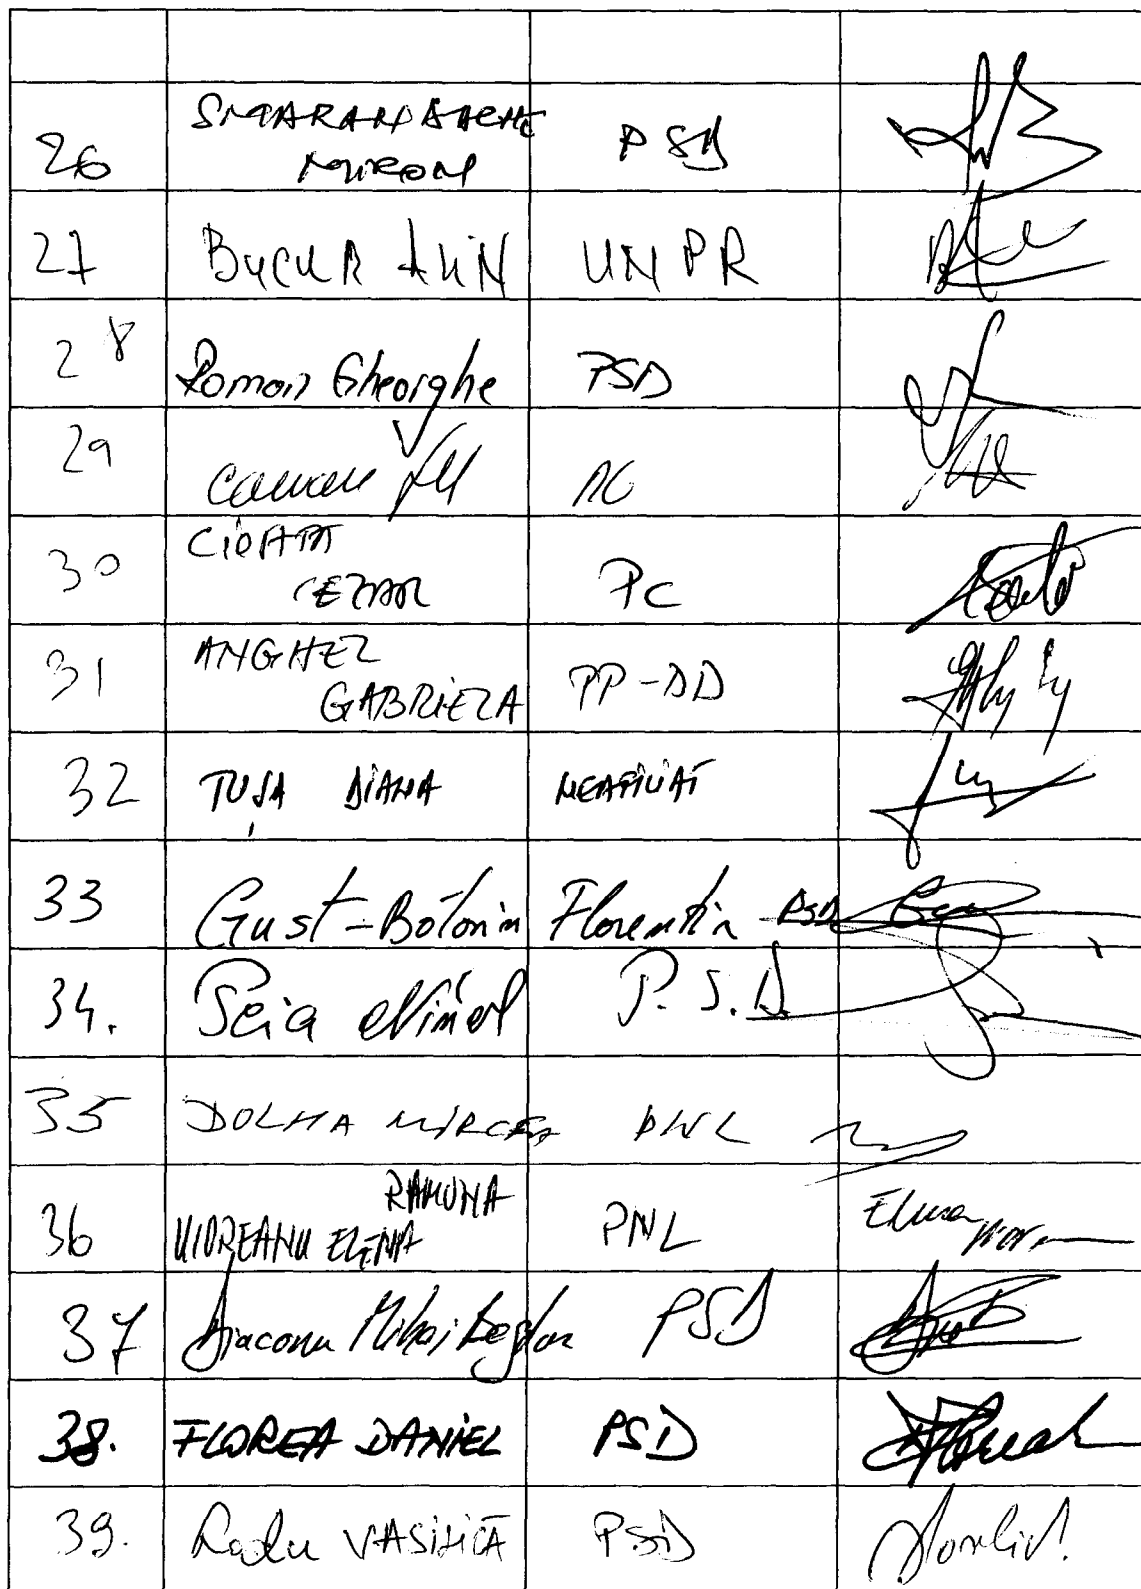 26 SMARANDACHE MIRON PSD
27 BUCUR ALIN UNPR
28 Roman Gheorghe PSD
29
30 CIOATA CEZAR PC
31 ANGHEL GABRIELA PP-DD
32 TUȘA DIANA NEAFILIAT
33 Gust-Botonin Florentin PSD
34. Ninel P.S.D
35 DOLHA MIRCEA PNL
36 UIOREANU ELENA RAMONA PNL
37 Diaconu Mihai Bogdan PSD
38. FLOREA DANIEL PSD
39. Radu VASILICĂ PSD